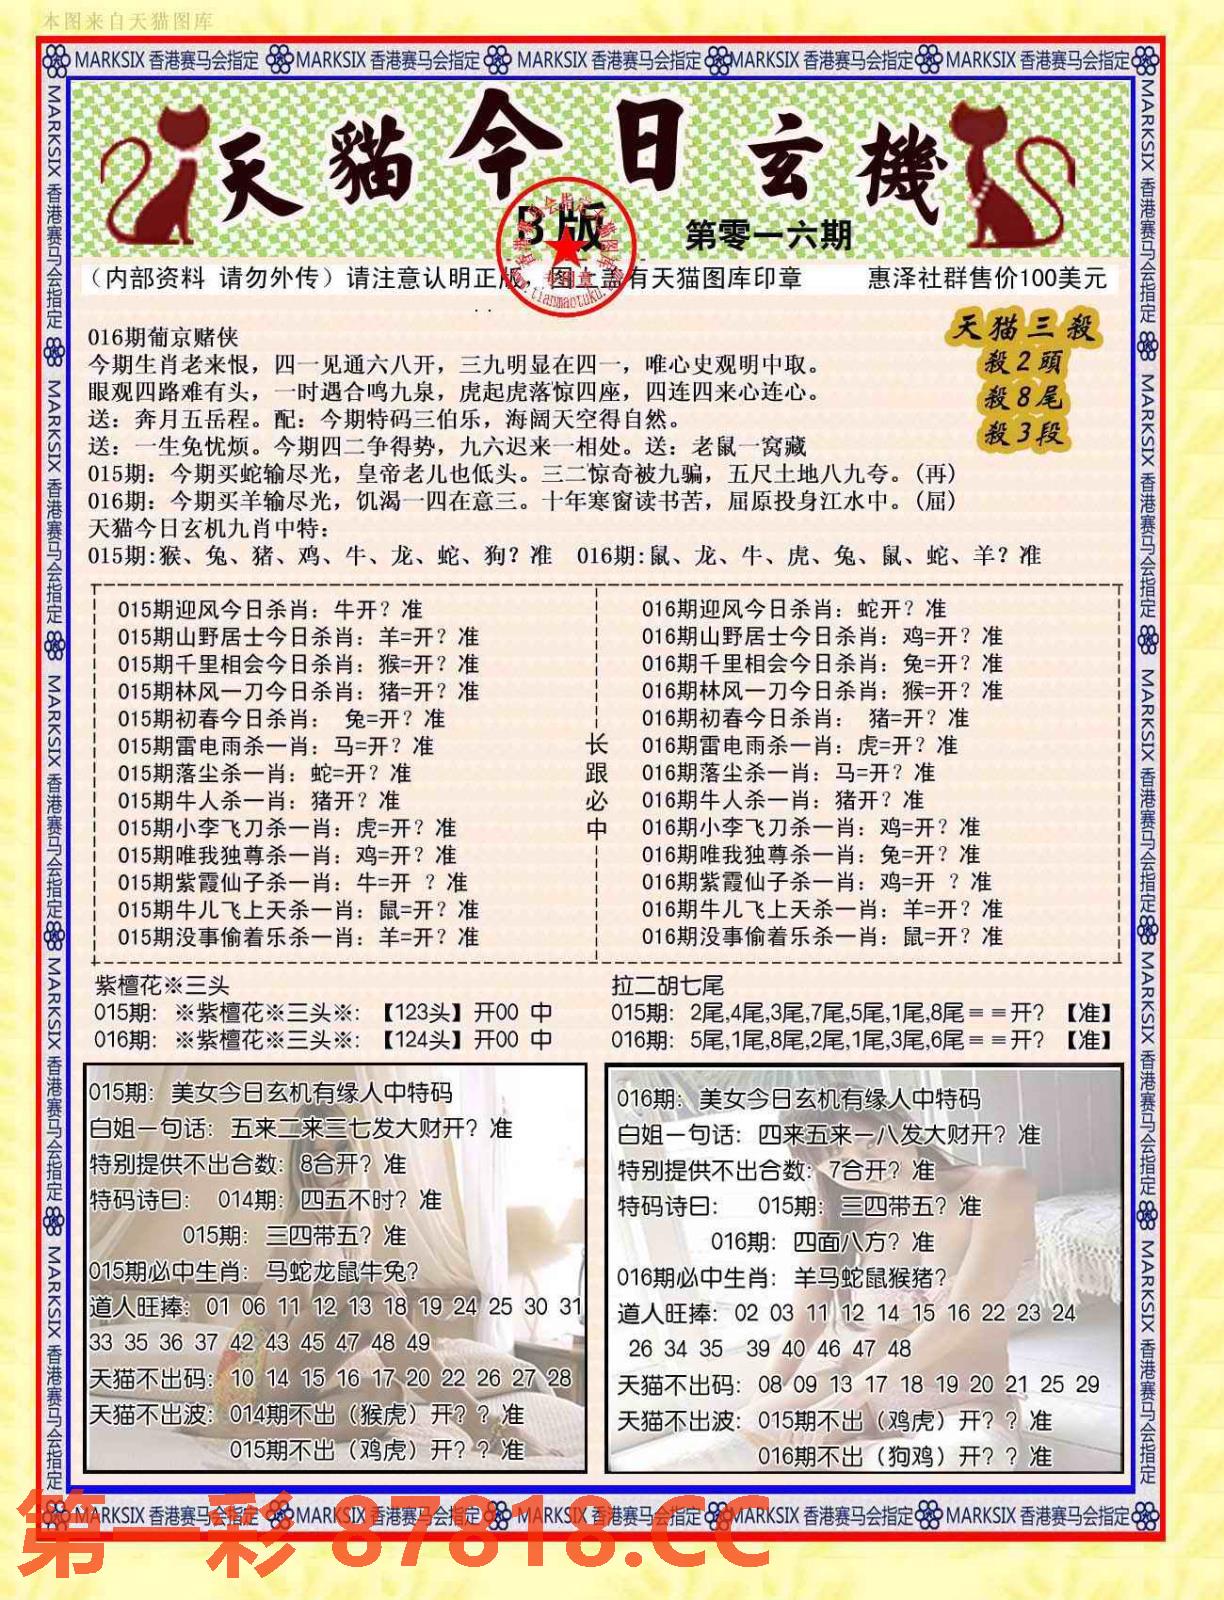 本图来自天猫图库
MARKSIX 香港赛马会指定 MARKSIX 香港赛马会指定 MARKSIX 香港赛马会指定 MARKSIX 香港赛马会指定 MARKSIX 香港赛马会指定
天貓今日玄機
B版
第零一六期
（内部资料 请勿外传）请注意认明正版 图上盖有天猫图库印章 惠泽社群售价100美元
天猫三殺
殺2頭
殺8尾
殺3段
016期葡京赌侠
今期生肖老来恨，四一见通六八开，三九明显在四一，唯心史观明中取。
眼观四路难有头，一时遇合鸣九泉，虎起虎落惊四座，四连四来心连心。
送：奔月五岳程。配：今期特码三伯乐，海阔天空得自然。
送：一生免忧烦。今期四二争得势，九六迟来一相处。送：老鼠一窝藏
015期：今期买蛇输尽光，皇帝老儿也低头。三二惊奇被九骗，五尺土地八九夸。(再)
016期：今期买羊输尽光，饥渴一四在意三。十年寒窗读书苦，屈原投身江水中。(屈)
天猫今日玄机九肖中特：
015期:猴、兔、猪、鸡、牛、龙、蛇、狗？准 016期:鼠、龙、牛、虎、兔、鼠、蛇、羊？准
015期迎风今日杀肖：牛开？准
015期山野居士今日杀肖：羊=开？准
015期千里相会今日杀肖：猴=开？准
015期林风一刀今日杀肖：猪=开？准
015期初春今日杀肖： 兔=开？准
015期雷电雨杀一肖：马=开？准
015期落尘杀一肖：蛇=开？准
015期牛人杀一肖：猪开？准
015期小李飞刀杀一肖：虎=开？准
015期唯我独尊杀一肖：鸡=开？准
015期紫霞仙子杀一肖：牛=开 ？准
015期牛儿飞上天杀一肖：鼠=开？准
015期没事偷着乐杀一肖：羊=开？准
长跟必中
016期迎风今日杀肖：蛇开？准
016期山野居士今日杀肖：鸡=开？准
016期千里相会今日杀肖：兔=开？准
016期林风一刀今日杀肖：猴=开？准
016期初春今日杀肖： 猪=开？准
016期雷电雨杀一肖：虎=开？准
016期落尘杀一肖：马=开？准
016期牛人杀一肖：猪开？准
016期小李飞刀杀一肖：鸡=开？准
016期唯我独尊杀一肖：兔=开？准
016期紫霞仙子杀一肖：鸡=开 ？准
016期牛儿飞上天杀一肖：羊=开？准
016期没事偷着乐杀一肖：鼠=开？准
紫檀花※三头
015期：※紫檀花※三头※：【123头】开00 中
016期：※紫檀花※三头※：【124头】开00 中
拉二胡七尾
015期：2尾,4尾,3尾,7尾,5尾,1尾,8尾＝＝开？【准】
016期：5尾,1尾,8尾,2尾,1尾,3尾,6尾＝＝开？【准】
015期：美女今日玄机有缘人中特码
白姐一句话：五来二来三七发大财开？准
特别提供不出合数：8合开？准
特码诗曰： 014期：四五不时？准
015期：三四带五？准
015期必中生肖：马蛇龙鼠牛兔？
道人旺捧：01 06 11 12 13 18 19 24 25 30 31
33 35 36 37 42 43 45 47 48 49
天猫不出码：10 14 15 16 17 20 22 26 27 28
天猫不出波：014期不出（猴虎）开？？准
015期不出（鸡虎）开？？准
016期：美女今日玄机有缘人中特码
白姐一句话：四来五来一八发大财开？准
特别提供不出合数：7合开？准
特码诗曰： 015期：三四带五？准
016期：四面八方？准
016期必中生肖：羊马蛇鼠猴猪？
道人旺捧：02 03 11 12 14 15 16 22 23 24
26 34 35 39 40 46 47 48
天猫不出码：08 09 13 17 18 19 20 21 25 29
天猫不出波：015期不出（鸡虎）开？？准
016期不出（狗鸡）开？？准
MARKSIX 香港赛马会指定 MARKSIX 香港赛马会指定 MARKSIX 香港赛马会指定 MARKSIX 香港赛马会指定 MARKSIX 香港赛马会指定
第一彩 87818.CC